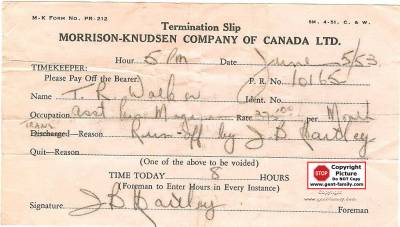 M-K FORM NO. PR-212
5M. 4-51. C. & W.
Termination Slip
MORRISON-KNUDSEN COMPANY OF CANADA LTD.
Hour 5 PM Date June 5/53
TIMEKEEPER: P. R. No. 10165
Please Pay Off the Bearer:
Name T. R. Walker Ident. No.
Occupation asst Rate per Month
TRANS
Discharged—Reason by J B Hartley
Quit—Reason
(One of the above to be voided)
TIME TODAY 8 HOURS
(Foreman to Enter Hours in Every Instance)
Signature J B Hartley Foreman
STOP
Copyright
Picture
Do NOT Copy
www.gent-family.com